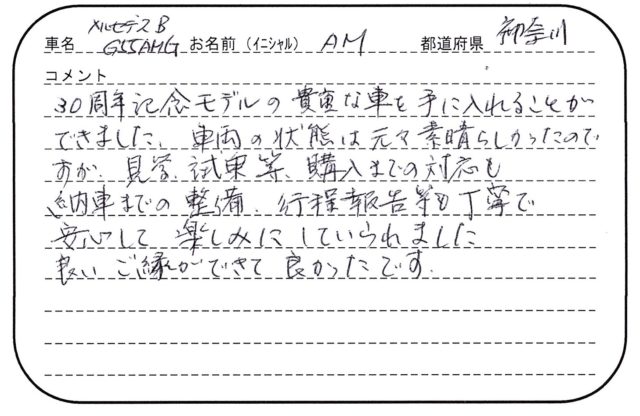 車名 メルセデスB G55AMG お名前(イニシャル) AM 都道府県 神奈川
コメント
30周年記念モデルの貴重な車を手に入れることが
できました。車両の状態は元々素晴らしかったので
すが、見学、試乗等、購入までの対応も
納車までの整備、行程報告等も丁寧で
安心して楽しみにしていられました
良いご縁ができて良かったです.